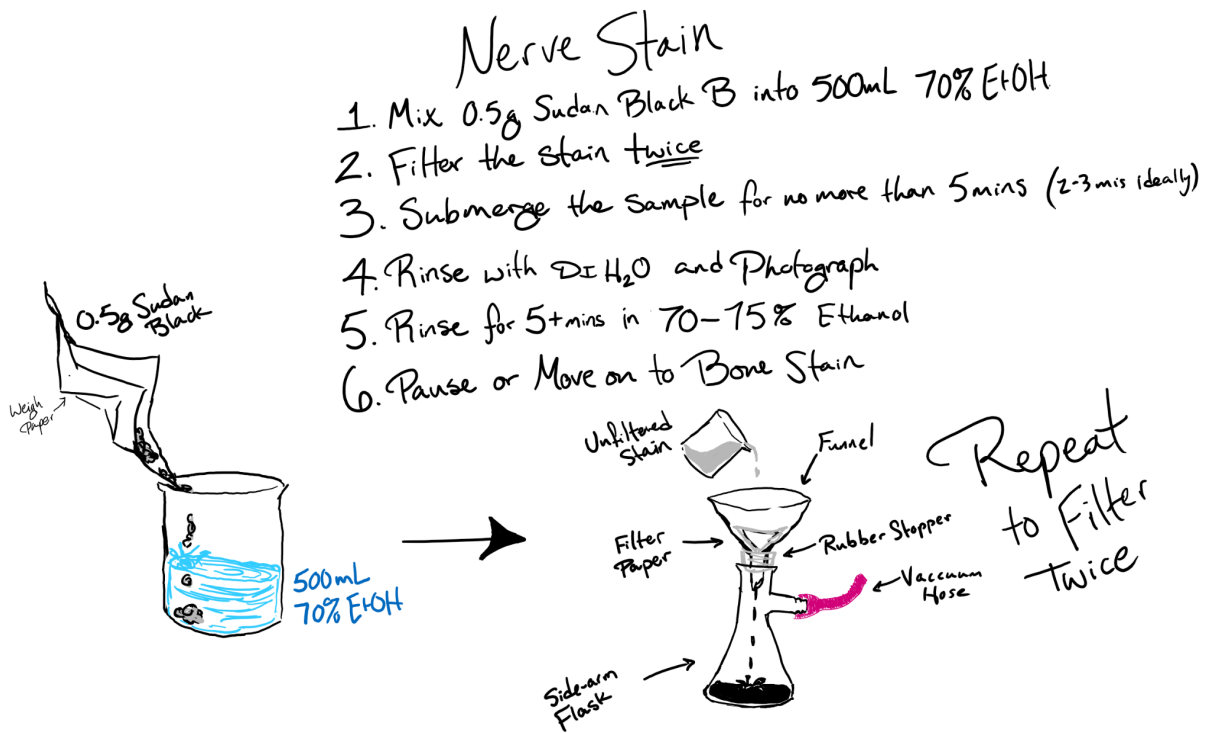 Nerve Stain
1. Mix 0.5g Sudan Black B into 500mL 70% EtOH
2. Filter the stain twice
3. Submerge the sample for no more than 5mins (2-3 mis ideally)
4. Rinse with DI H₂O and Photograph
5. Rinse for 5+mins in 70-75% Ethanol
6. Pause or Move on to Bone Stain
0.5g Sudan
Black
Weigh
Paper
500mL
70% EtOH
Unfiltered
Stain
Funnel
Filter
Paper
Rubber Stopper
Vaccuum
Hose
Side-arm
Flask
Repeat
to Filter
Twice